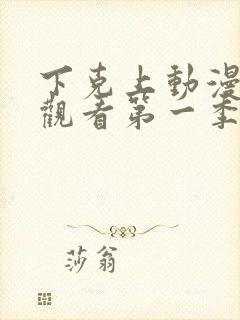 下克上動漫
觀看第一季
莎翁